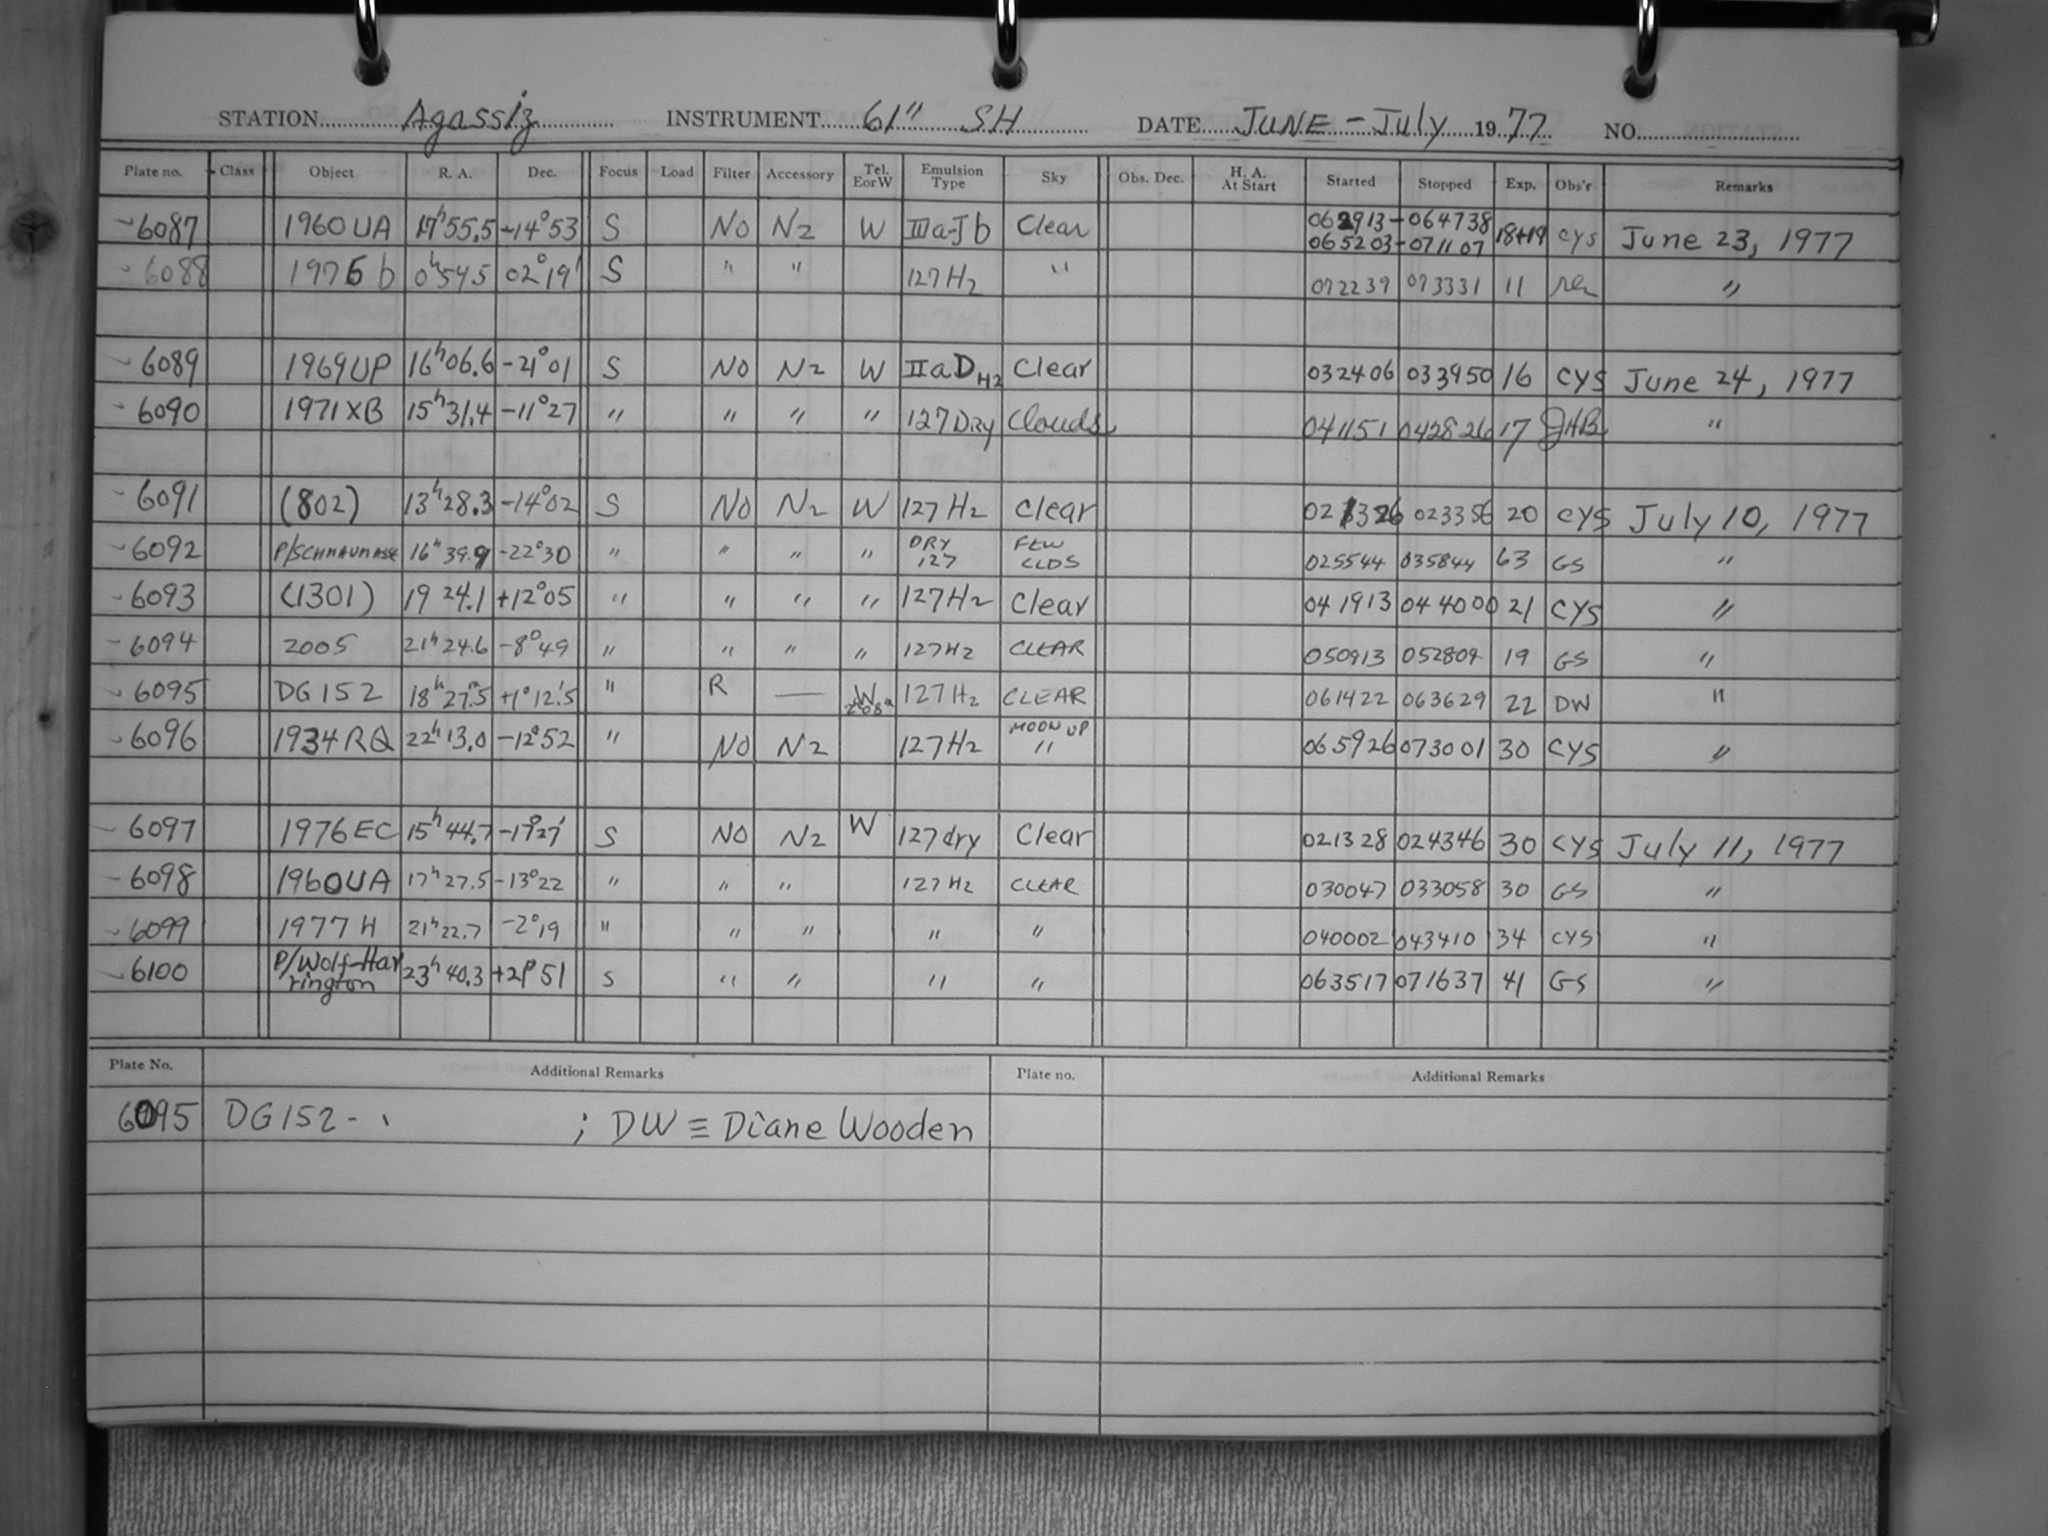 STATION Agassiz INSTRUMENT 61" SH DATE JUNE - July 1977 NO.
Plate no. Class Object R. A. Dec. Focus Load Filter Accessory Tel. E or W Emulsion Type Sky Obs. Dec. H. A. At Start Started Stopped Exp. Obs'r Remarks
6087 1960 UA 17h55.5 -14°53 S NO N2 W IIIa-Jb Clear 062913-064738 065203-071107 18+19 CYS June 23, 1977
6088 1976 b 0h54.5 02°19' S " " 127 H2 " 072239 073331 11 "
6089 1969 UP 16h06.6 -21°01 S NO N2 W IIaD H2 Clear 032406 033950 16 CYS June 24, 1977
6090 1971 XB 15h31.4 -11°27 " " " " 127 DRY Clouds 041151 042826 17 JHB "
6091 (802) 13h28.3 -14°02 S NO N2 W 127 H2 Clear 021326 023356 20 CYS July 10, 1977
6092 16h39.9 -22°30 " " " " DRY 127 FEW CLDS 025544 035844 63 GS "
6093 (1301) 19 24.1 +12°05 " " " " 127 H2 Clear 041913 044000 21 CYS "
6094 2005 21h24.6 -8°49 " " " " 127 H2 CLEAR 050913 052804 19 GS "
6095 DG 152 18h27m.5 +1°12'.5 " R — W 127 H2 CLEAR 061422 063629 22 DW "
6096 1934 RQ 22h13.0 -12°52 " NO N2 127 H2 MOON UP " 065926 073001 30 CYS "
6097 1976 EC 15h44.7 -17°27' S NO N2 W 127 dry Clear 021328 024346 30 CYS July 11, 1977
6098 1960 UA 17h27.5 -13°22 " " " 127 H2 CLEAR 030047 033058 30 GS "
6099 1977 H 21h22.7 -2°19 " " " " " 040002 043410 34 CYS "
6100 P/Wolf-Harrington 23h40.3 +21°51 S " " " " 063517 071637 41 GS "
Plate No. Additional Remarks Plate no. Additional Remarks
6095 DG 152 - ; DW ≡ Diane Wooden